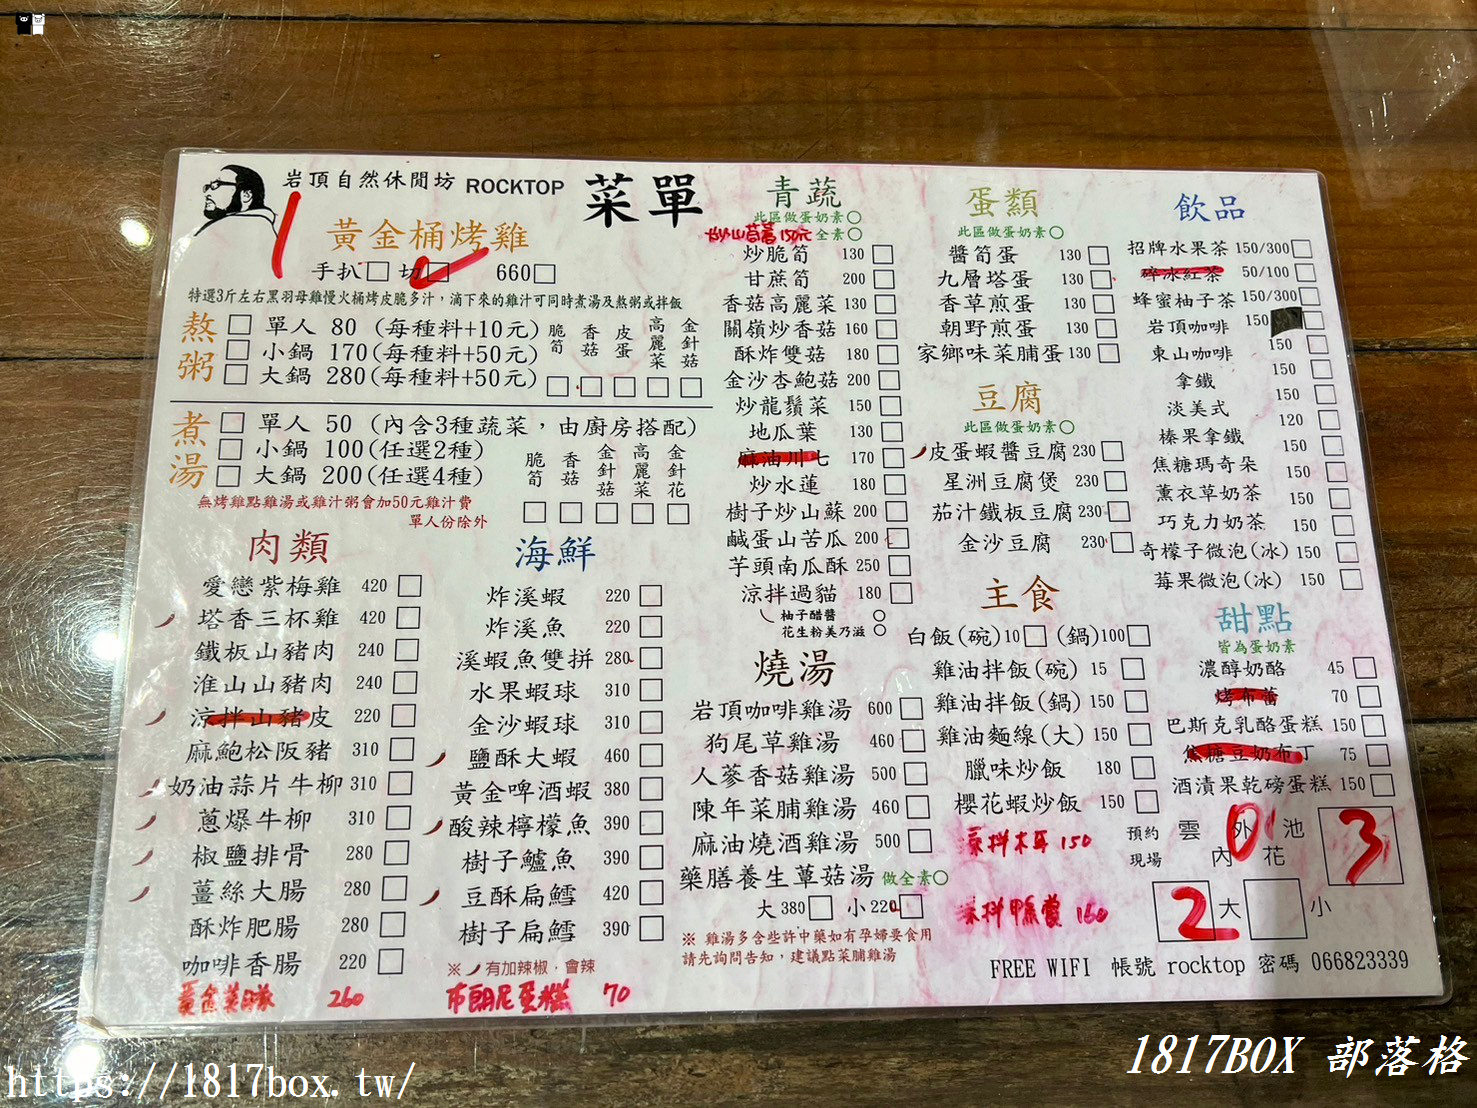 岩頂自然休閒坊 ROCKTOP 菜單
黃金桶烤雞
手扒□ 切□ 660□
特選3斤左右黑羽母雞慢火桶烤皮脆多汁，滴下來的雞汁可同時煮湯及熬粥或拌飯
熬粥
□ 單人 80 (每種料+10元)
□ 小鍋 170(每種料+50元)
□ 大鍋 280(每種料+50元)
脆筍 香菇 皮蛋 高麗菜 金針菇
煮湯
□ 單人 50 (內含3種蔬菜，由廚房搭配)
□ 小鍋 100(任選2種)
□ 大鍋 200(任選4種)
脆筍 香菇 金針菇 高麗菜 金針花
無烤雞點雞湯或雞汁粥會加50元雞汁費
單人份除外
肉類
愛戀紫梅雞 420
塔香三杯雞 420
鐵板山豬肉 240
淮山山豬肉 240
涼拌山豬皮 220
麻鮑松阪豬 310
奶油蒜片牛柳 310
蔥爆牛柳 310
椒鹽排骨 280
薑絲大腸 280
酥炸肥腸 280
咖啡香腸 220
260
海鮮
炸溪蝦 220
炸溪魚 220
溪蝦魚雙拼 280
水果蝦球 310
金沙蝦球 310
鹽酥大蝦 460
黃金啤酒蝦 380
酸辣檸檬魚 390
樹子鱸魚 390
豆酥扁鱈 420
樹子扁鱈 390
※ 有加辣椒，會辣
布朗尼蛋糕 70
青蔬
此區做蛋奶素○
150元 全素○
炒脆筍 130
甘蔗筍 200
香菇高麗菜 130
關嶺炒香菇 160
酥炸雙菇 180
金沙杏鮑菇 200
炒龍鬚菜 150
地瓜葉 130
麻油川七 170
炒水蓮 180
樹子炒山蘇 200
鹹蛋山苦瓜 200
芋頭南瓜酥 250
涼拌過貓 180
柚子醋醬 ○
花生粉美乃滋 ○
燒湯
岩頂咖啡雞湯 600
狗尾草雞湯 460
人蔘香菇雞湯 500
陳年菜脯雞湯 460
麻油燒酒雞湯 500
藥膳養生蕈菇湯 做全素○
大380□ 小220□
※ 雞湯多含些許中藥如有孕婦要食用
請先詢問告知，建議點菜脯雞湯
蛋類
此區做蛋奶素○
醬筍蛋 130
九層塔蛋 130
香草煎蛋 130
朝野煎蛋 130
家鄉味菜脯蛋 130
豆腐
此區做蛋奶素○
皮蛋蝦醬豆腐 230
星洲豆腐煲 230
茄汁鐵板豆腐 230
金沙豆腐 230
主食
白飯(碗)10□ (鍋)100□
雞油拌飯(碗) 15
雞油拌飯(鍋) 150
雞油麵線(大) 150
臘味炒飯 180
櫻花蝦炒飯 150
涼拌木耳 150
160
飲品
招牌水果茶 150/300
碎冰紅茶 50/100
蜂蜜柚子茶 150/300
岩頂咖啡 150
東山咖啡 150
拿鐵 150
淡美式 150
榛果拿鐵 120
焦糖瑪奇朵 150
薰衣草奶茶 150
巧克力奶茶 150
奇檬子微泡(冰) 150
莓果微泡(冰) 150
甜點
皆為蛋奶素
濃醇奶酪 45
烤布蕾 70
巴斯克乳酪蛋糕 150
焦糖豆奶布丁 75
酒漬果乾磅蛋糕 150
預約 雲 外 池
現場 內 花
3
2 大 小
FREE WIFI 帳號 rocktop 密碼 066823339
1817BOX 部落格
https://1817box.tw/